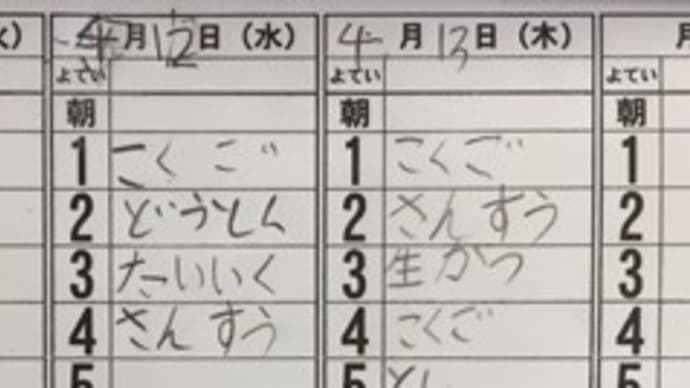 4月12日（水）
よてい
朝
1 こくご
2 どうとく
3 たいいく
4 さんすう
5
4月13日（木）
よてい
朝
1 こくご
2 さんすう
3 生かつ
4 こくご
5
月
よてい
朝
1
2
3
4
5